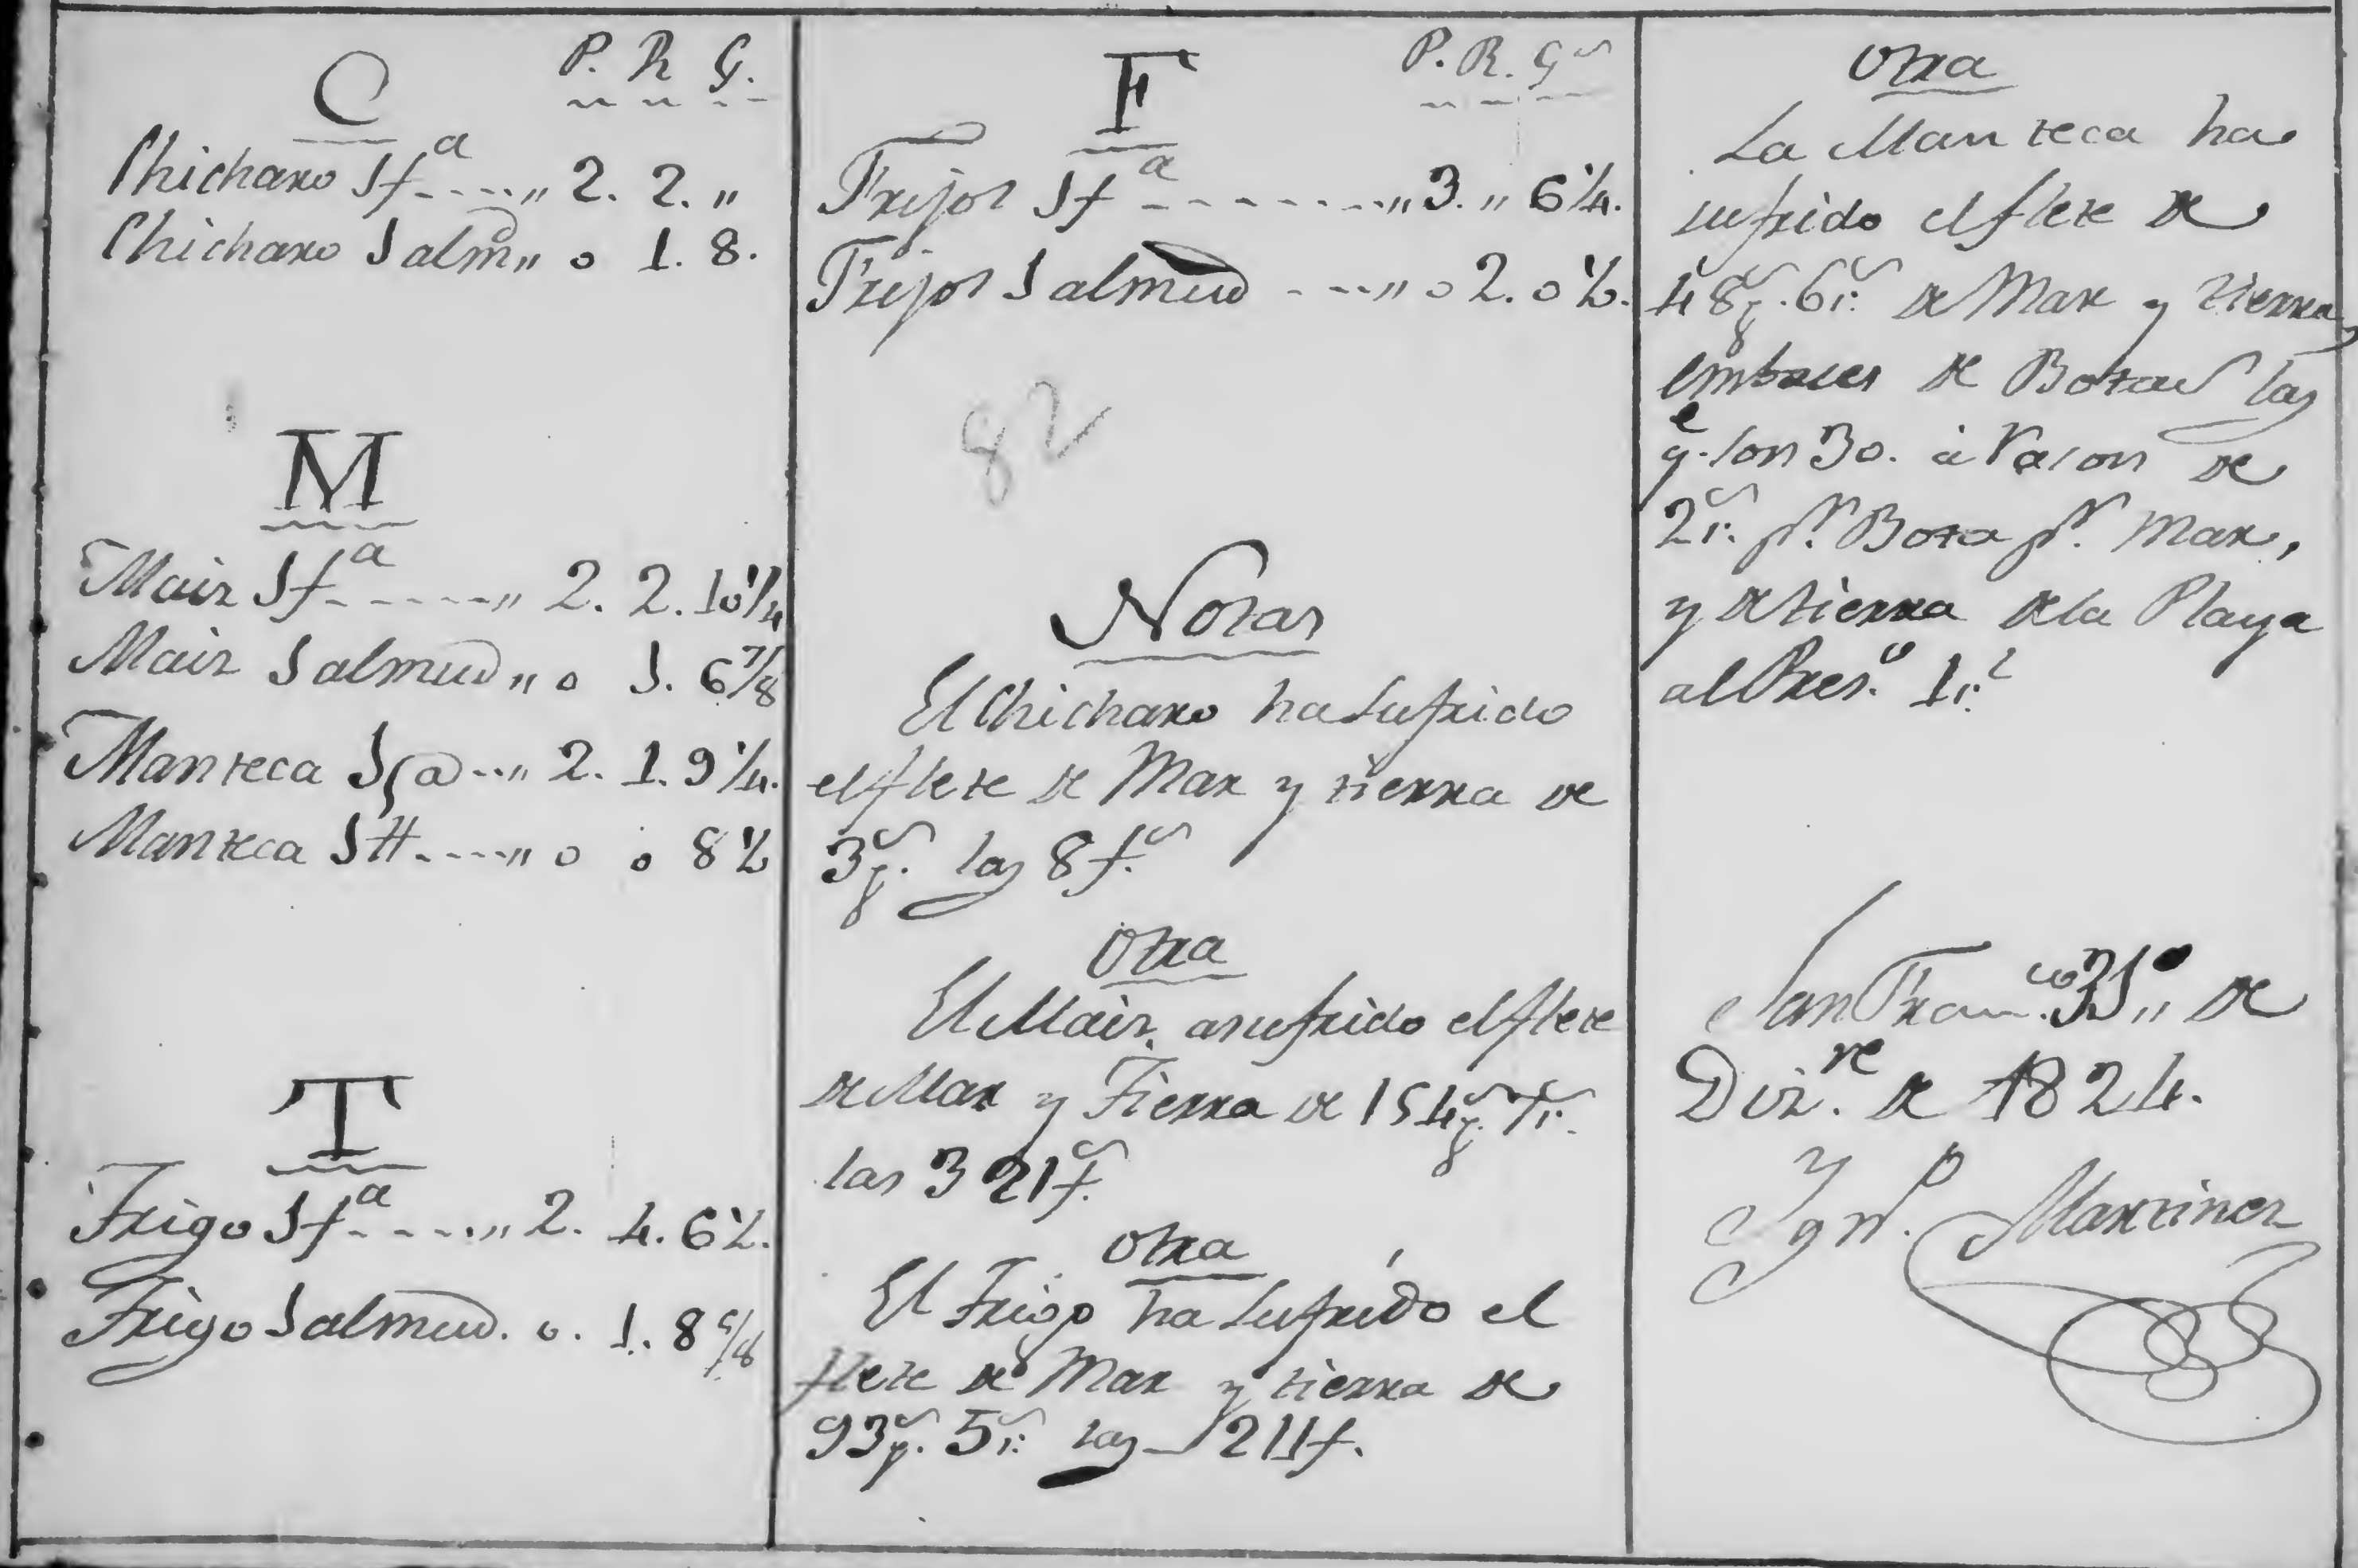 C P. R G.
Chicharo 1 f.a ----„ 2. 2. „
Chicharo 1 almd „ 0 1. 8.
M
Mais 1 f.a -----„ 2. 2. 10 1/4
Mais 1 almud „ 0 1. 6 7/8
Manteca 1 @ --„ 2. 1. 9 1/4.
Manteca 1 tt ----„ 0 0 8 1/2
T
Trigo 1 f.a ----„ 2. 4. 6 1/2.
Trigo 1 almud. 0. 1. 8 5/8
F P. R. Gs
Frijol 1 f.a --------„ 3. „ 6 1/4.
Frijol 1 almud ---„ 0 2. 0 1/2.
82
Notas
El Chicharo ha sufrido
el flete de Mar y tierra de
3 ps. las 8 f.s
Otra
El Mais a sufrido el flete
de Mar y Tierra de 154 ps. 7 rs.
las 321 f.s
Otra
El Trigo ha sufrido el
flete de Mar y tierra de
93 ps. 5 rs. las 211 f.
Otra
La Manteca ha
sufrido el flete de
48 ps. 6 rs. de Mar y tierra,
embases de Botas las
q.e son 30. a rason de
2 rs. p.r Bota p.r Mar,
y de tierra de la Playa
al Pres.o 1 r.l
San Fran.co 31„ de
Diz.re de 1824.
Ygn.o Martinez